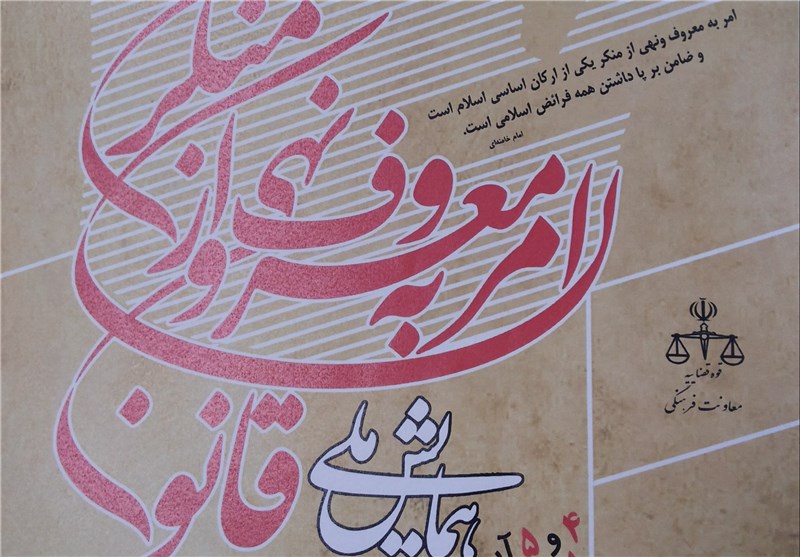 امر به معروف ونهی از منکر یکی از ارکان اساسی اسلام است
و ضامن بر پا داشتن همه فرائض اسلامی است.
امام خامنه‌ای
امر به معروف و نهی از منکر
قانون
همایش ملی
۴ و ۵
قوه قضاییه
معاونت فرهنگی